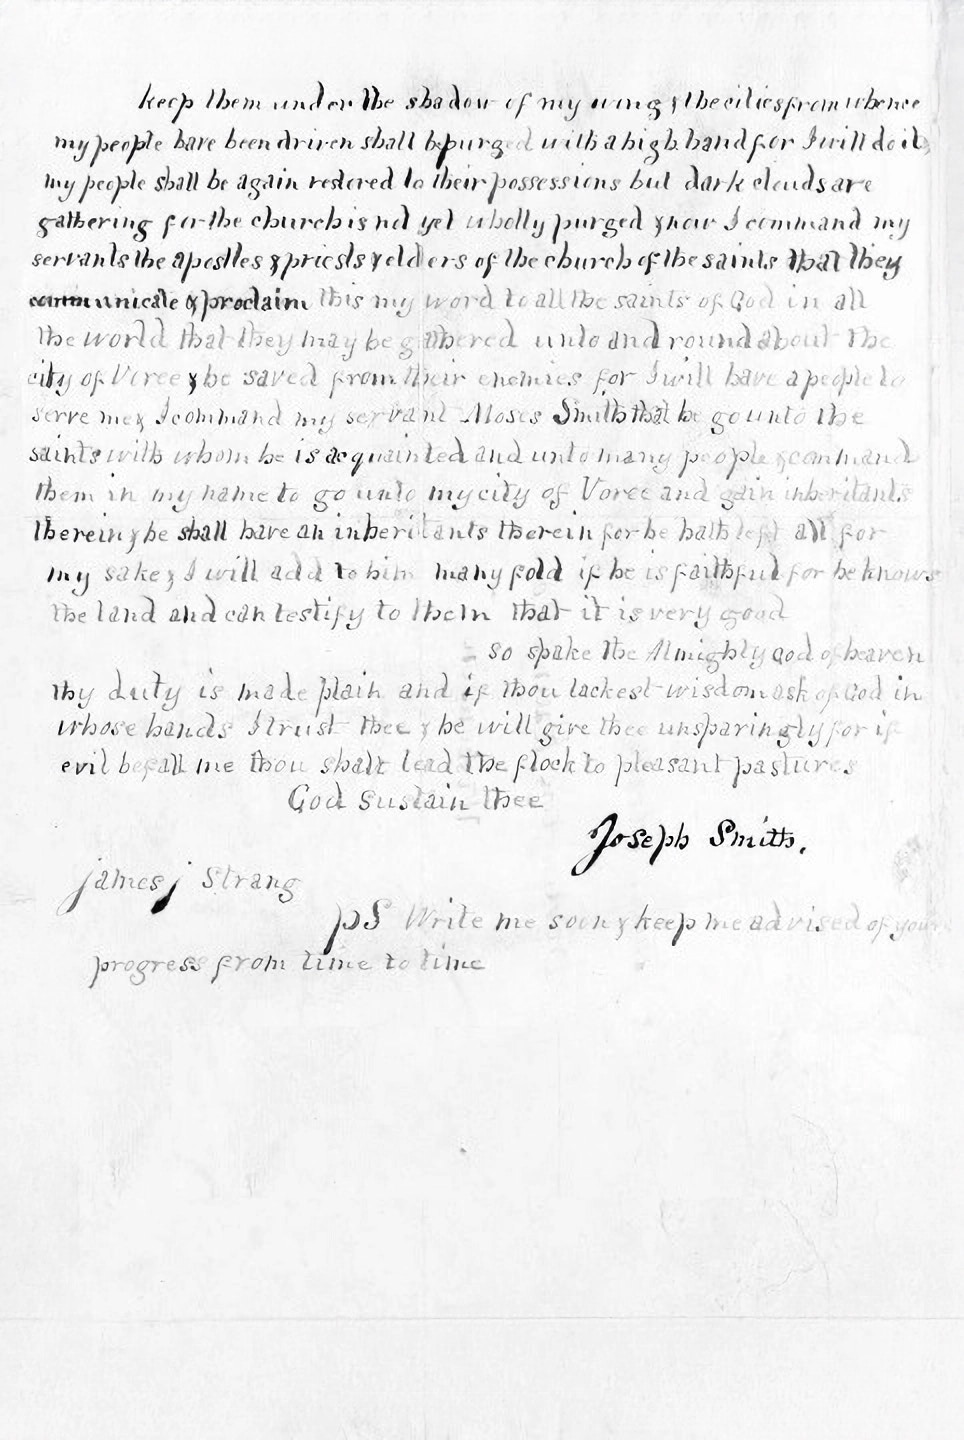 keep them under the shadow of my wing & the cities from whence
my people have been driven shall be purged with a high hand for I will do it
my people shall be again restored to their possessions but dark clouds are
gathering for the church is not yet wholly purged & now I command my
servants the apostles & priests & elders of the church of the saints that they
communicate & proclaim this my word to all the saints of God in all
the world that they may be gathered unto and round about the
city of Voree & be saved from their enemies for I will have a people to
serve me & I command my servant Moses Smith that he go unto the
saints with whom he is acquainted and unto many people & command
them in my name to go unto my city of Voree and gain inheritants
therein & he shall have an inheritants therein for he hath left all for
my sake & I will add to him many fold if he is faithful for he knows
the land and can testify to them that it is very good
so spake the Almighty God of heaven
thy duty is made plain and if thou lackest wisdom ask of God in
whose hands I trust thee & he will give thee unsparingly for if
evil befall me thou shalt lead the flock to pleasant pastures
God sustain thee
Joseph Smith.
james j Strang
pS Write me soon & keep me advised of your
progress from time to time